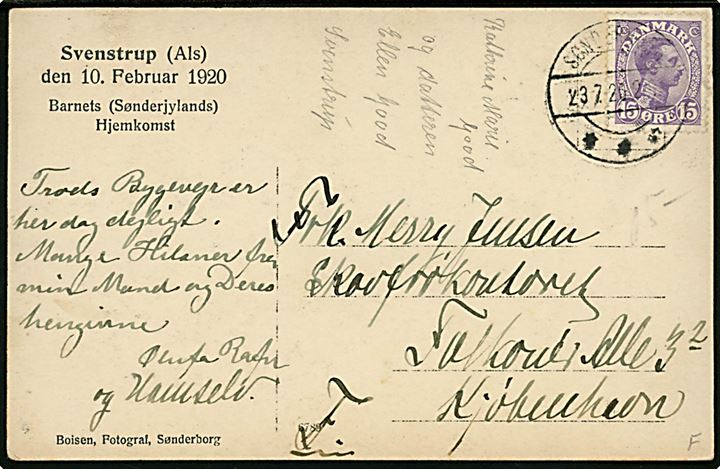 Svenstrup (Als)
den 10. Februar 1920
Barnets (Sønderjylands)
Hjemkomst
Trods Bygevejr er
her dog dejligt.
Mange Hilsner fra
min Mand og Deres
hengivne
og Hamselv.
Boisen, Fotograf, Sønderborg
Kathrine Marie
Good
og datteren
Ellen Good
Svenstrup
DANMARK
15 ØRE 15
SØNDER
23.7.20
Frk. Merry Jensen
Falkoner Alle 32
Kjøbenhavn
F